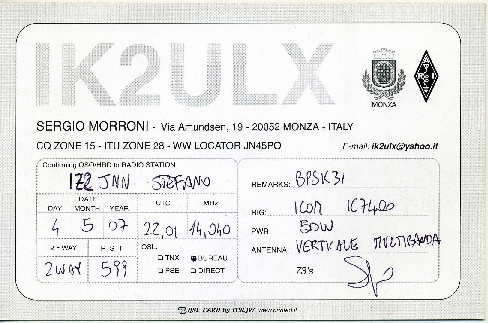 IK2ULX
MONZA
SERGIO MORRONI - Via Amundsen, 19 - 20052 MONZA - ITALY
CQ ZONE 15 - ITU ZONE 28 - WW LOCATOR JN45PO E-mail: ik2ulx@yahoo.it
Confirming QSO/HRD to RADIO STATION
IZ2JNN STEFANO
DATE
DAY MONTH YEAR UTC MHz
4 5 07 22,01 14,040
2-WAY RST QSL:
2WAY 599
TNX BUREAU
PSE DIRECT
REMARKS: BPSK31
RIG: ICOM IC7400
PWR: 50W
ANTENNA: VERTICALE MULTIBANDA
73's
QSL CARD by